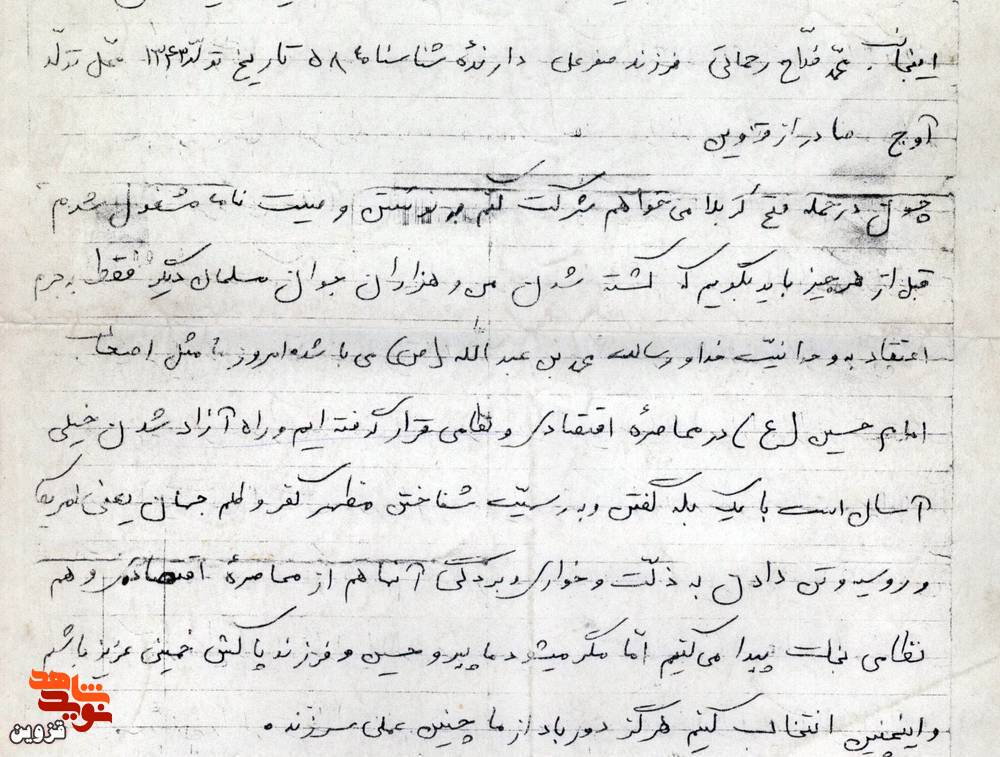 اینجانب محمد فتاح رحمانی فرزند صفرعلی دارندهٔ شناسنامه ۵۸ تاریخ تولّد ۱۳۴۳ محل تولّد
آوج صادر از قزوین
چون در حمله فتح کربلا می‌خواهم شرکت کنم به نوشتن وصیت نامه مشغول شدم
قبل از هر چیز باید بگویم که کشته شدن من و هزاران جوان مسلمان دیگر فقط به جرم
اعتقاد به وحدانیّت خدا و رسالت محمد بن عبد الله (ص) می باشد امروز ما مثل اصحاب
امام حسین (ع) در محاصرهٔ اقتصادی و نظامی قرار گرفته ایم و راه آزاد شدن خیلی
آسان است با یک بله گفتن و به رسمیّت شناختن مظهر کفر و ظلم جهان یعنی امریکا
و روسیه و تن دادن به ذلّت و خواری و بردگی آنها هم از محاصرهٔ اقتصادی و هم
نظامی نجات پیدا می‌کنیم امّا مگر میشود ما پیرو حسین و فرزند پاکش خمینی عزیز باشیم
و اینچنین انتخاب کنیم هرگز دور باد از ما چنین عملی سر زند.
نوید شاهد
قزوین